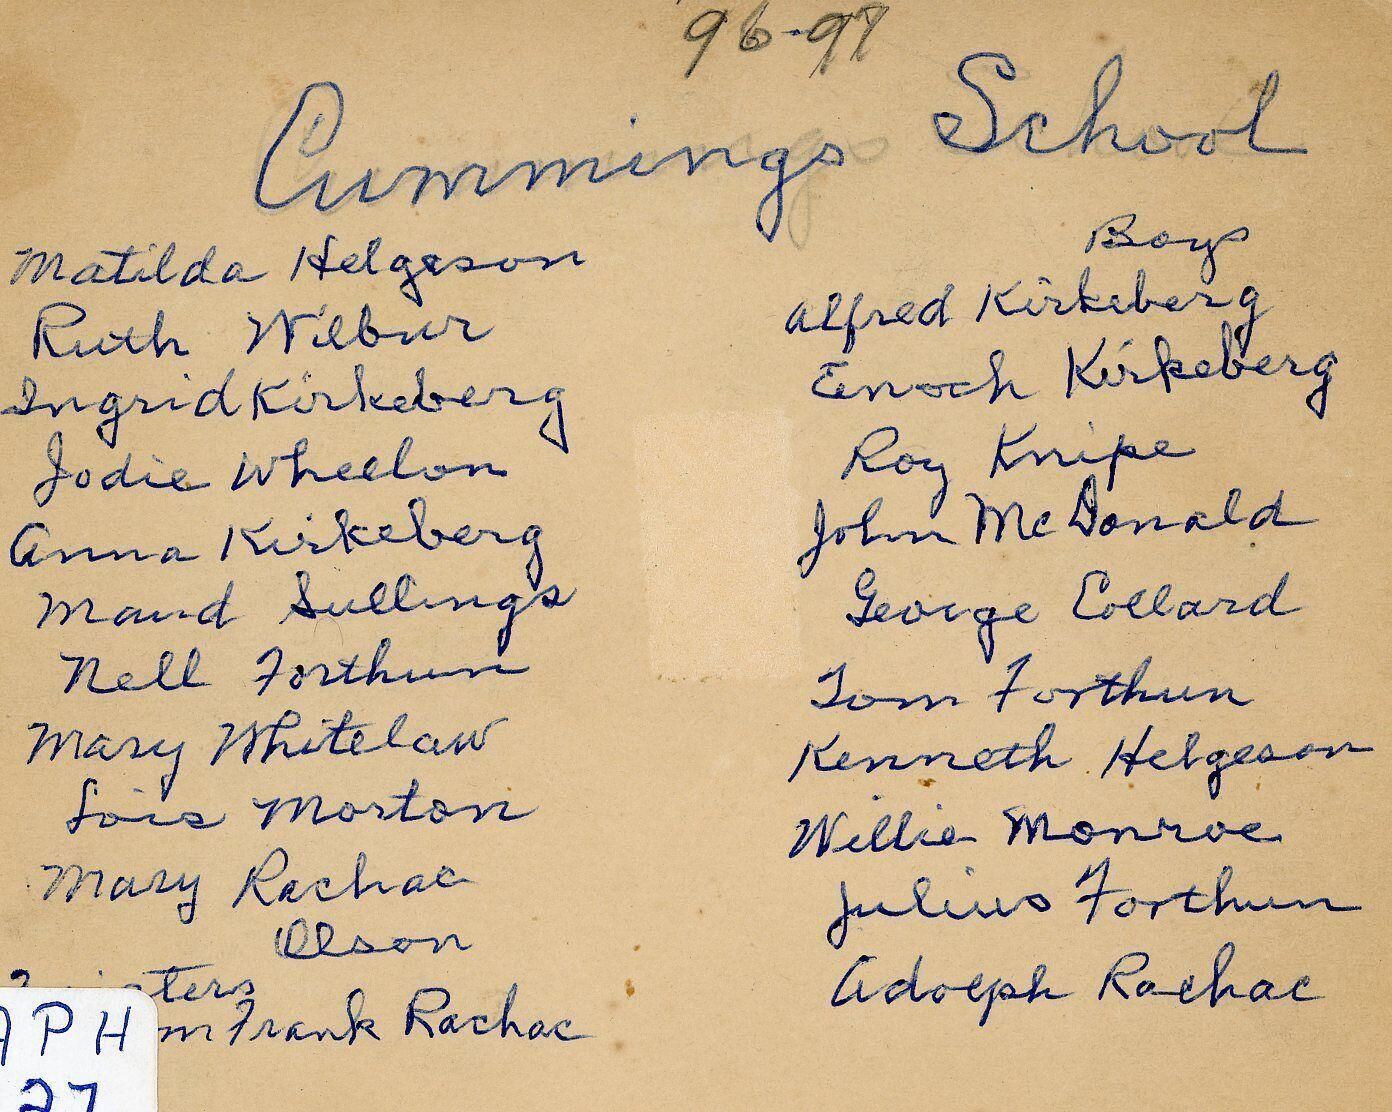 96-97
Cummings School
Matilda Helgeson
Ruth Wilbur
Ingrid Kirkeberg
Jodie Wheelon
Anna Kirkeberg
Maud Sullings
Nell Forthun
Mary Whitelaw
Lois Morton
Mary Rachac
Olson
Frank Rachac
Boys
Alfred Kirkeberg
Enoch Kirkeberg
Roy Knipe
John McDonald
George Collard
Tom Forthun
Kenneth Helgeson
Willie Monroe
Julius Forthun
Adolph Rachac
APH
27